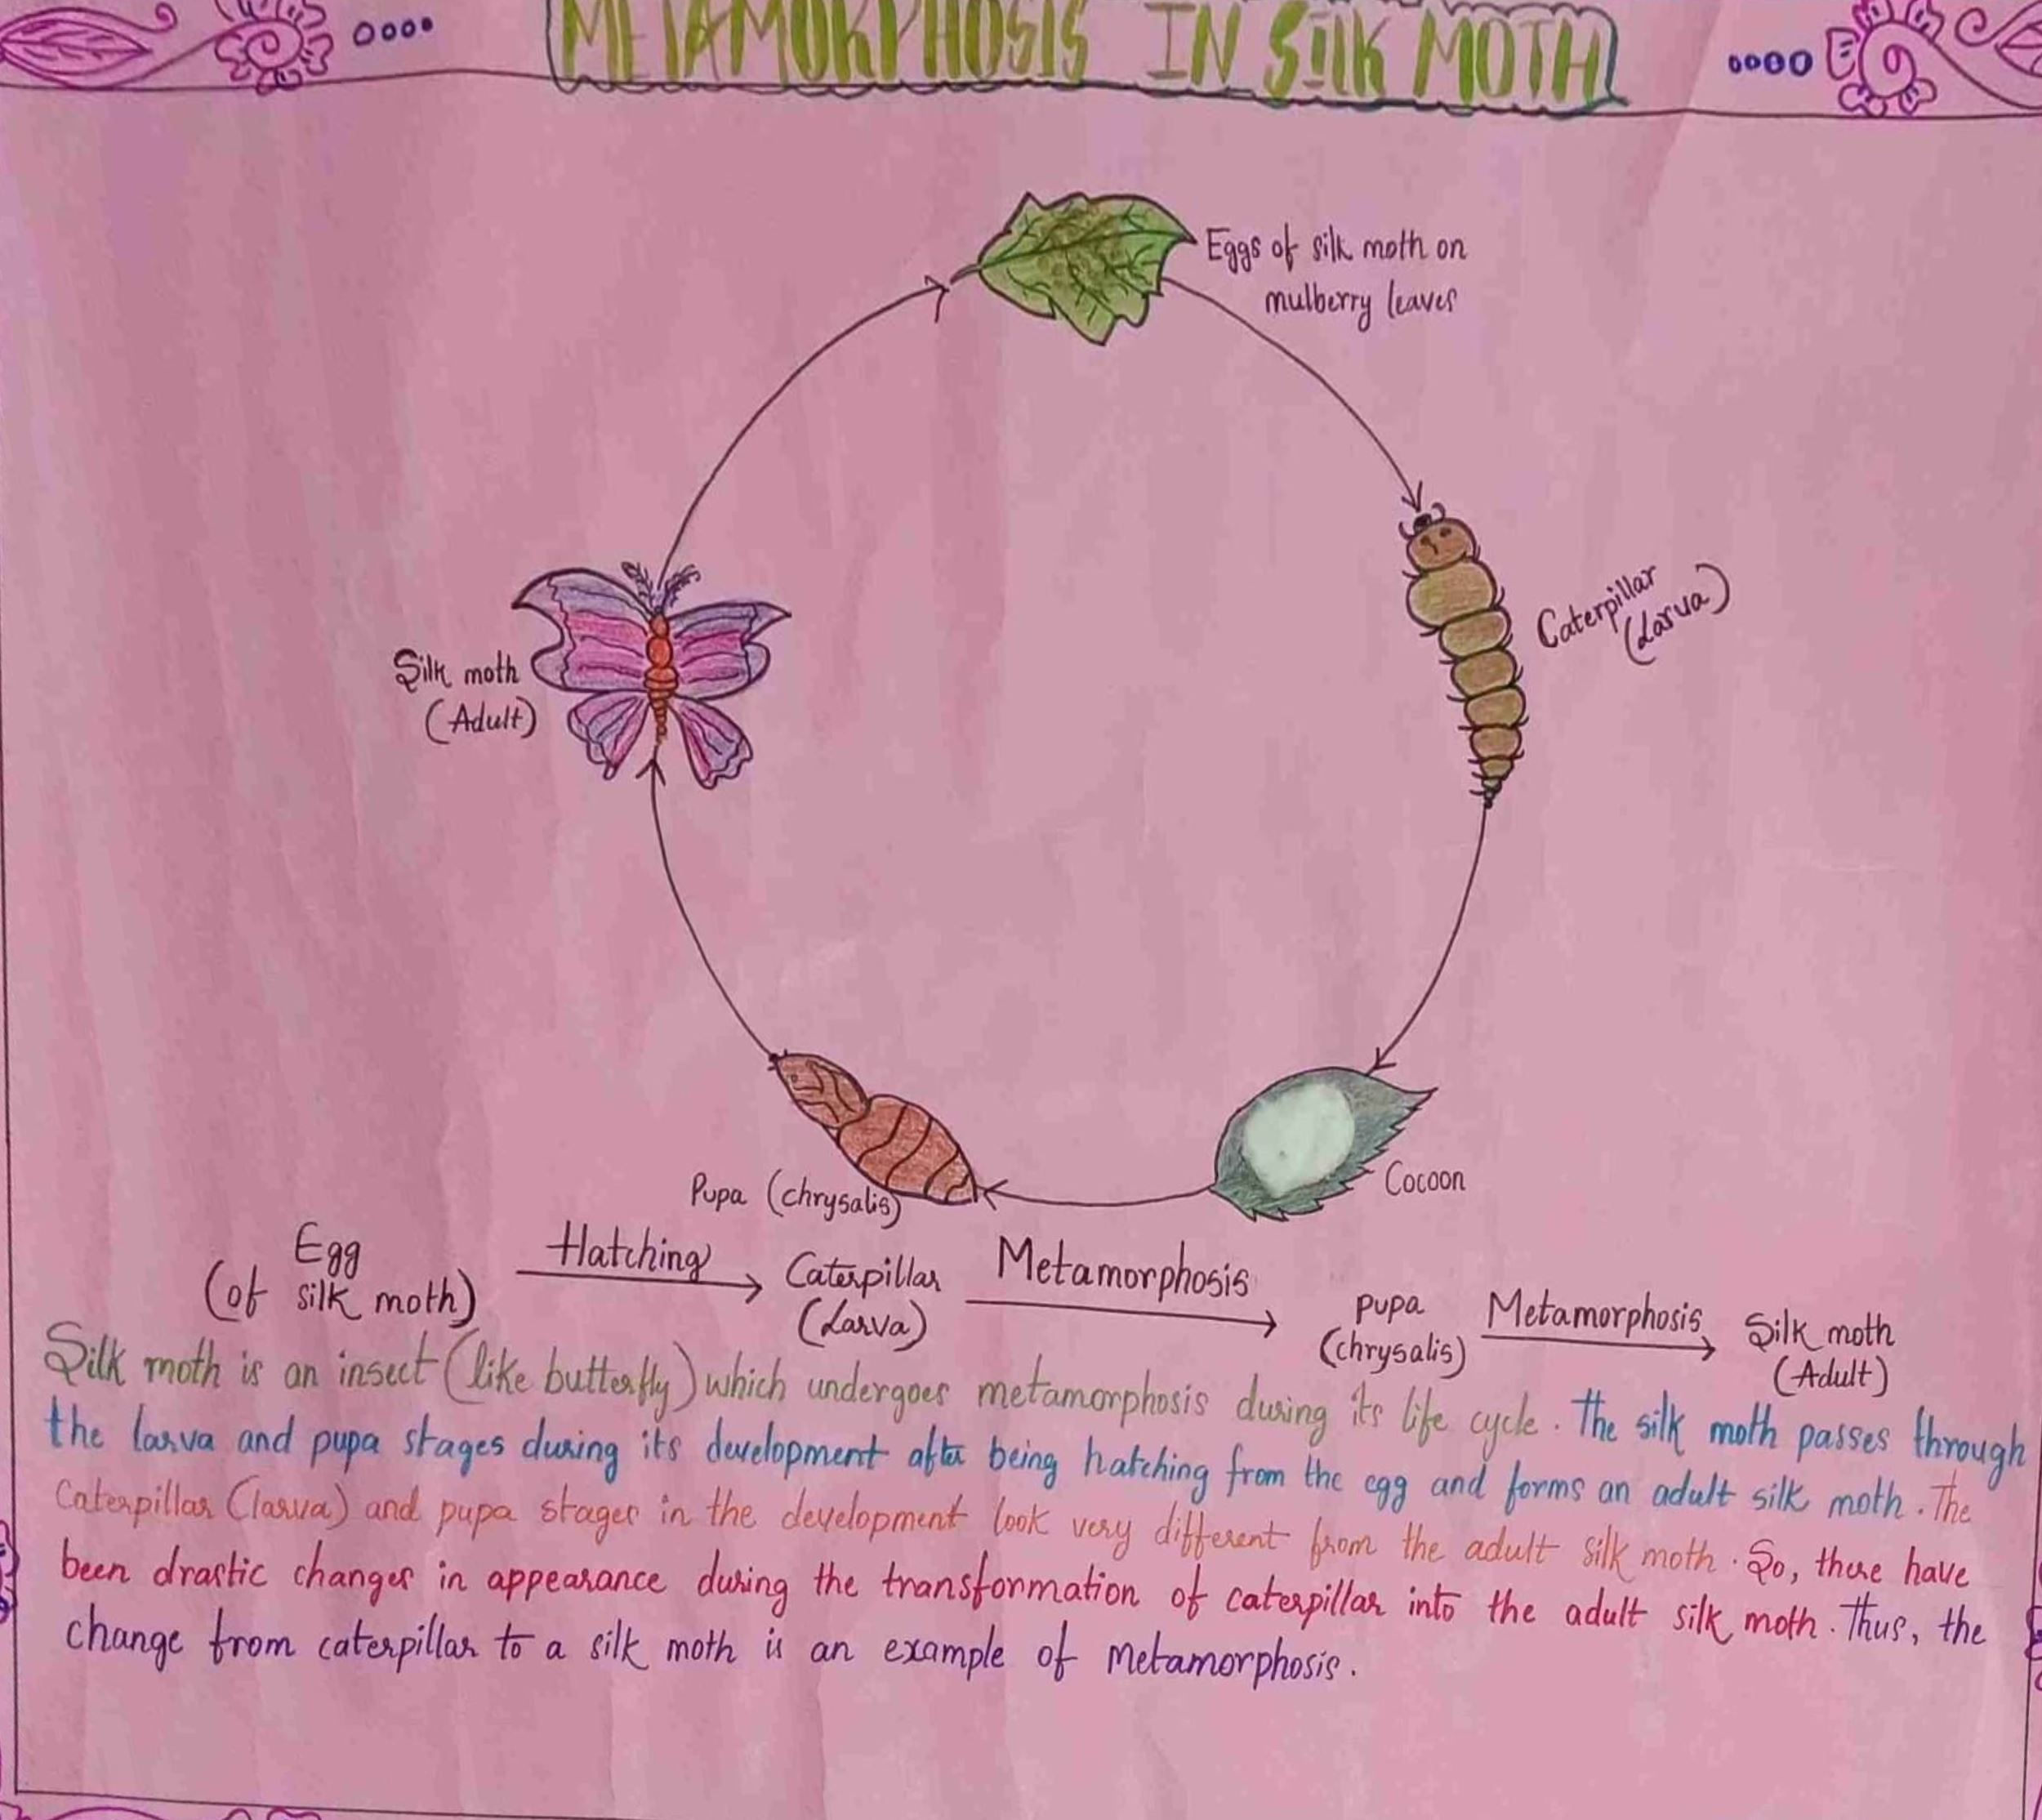 METAMORPHOSIS IN SILK MOTH
Eggs of silk moth on
mulberry leaves
Caterpillar
(Larva)
Silk moth
(Adult)
Cocoon
Pupa (chrysalis)
Egg
(of silk moth)
Hatching
Caterpillar
(Larva)
Metamorphosis
pupa
(chrysalis)
Metamorphosis
Silk moth
(Adult)
Silk moth is an insect (like butterfly) which undergoes metamorphosis during its life cycle. The silk moth passes through
the larva and pupa stages during its development after being hatching from the egg and forms an adult silk moth. The
Caterpillar (larva) and pupa stages in the development look very different from the adult silk moth. So, there have
been drastic changes in appearance during the transformation of caterpillar into the adult silk moth. Thus, the
change from caterpillar to a silk moth is an example of Metamorphosis.